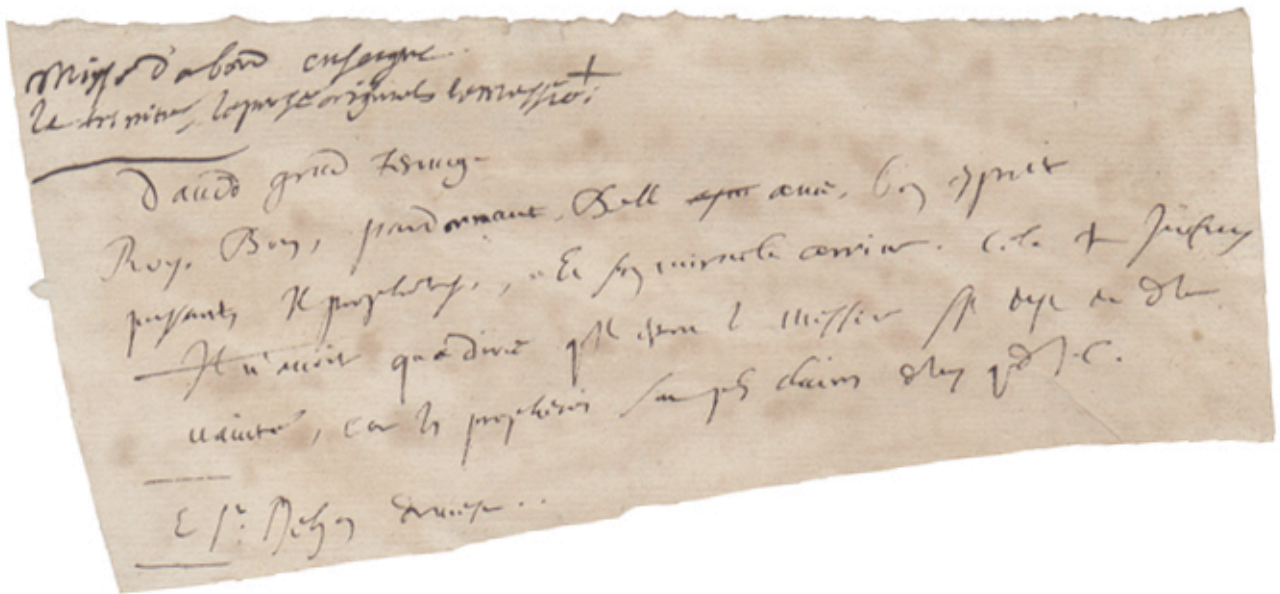 Moyse d'abord enseigne
la trinité, le peché originel, le messie.
David grand tesmoin
Roy, Bon, pardonnant, Belle ame, bon esprit
puissant, Il prophetise, et son miracle arrive. Cela est infiny
Il n'avoit qu'a dire qu'il estoit le Messie s'il eust eu de la
vanité, car les propheties sont plus claires de luy que de J.C.
Et St. Jehan de mesme..